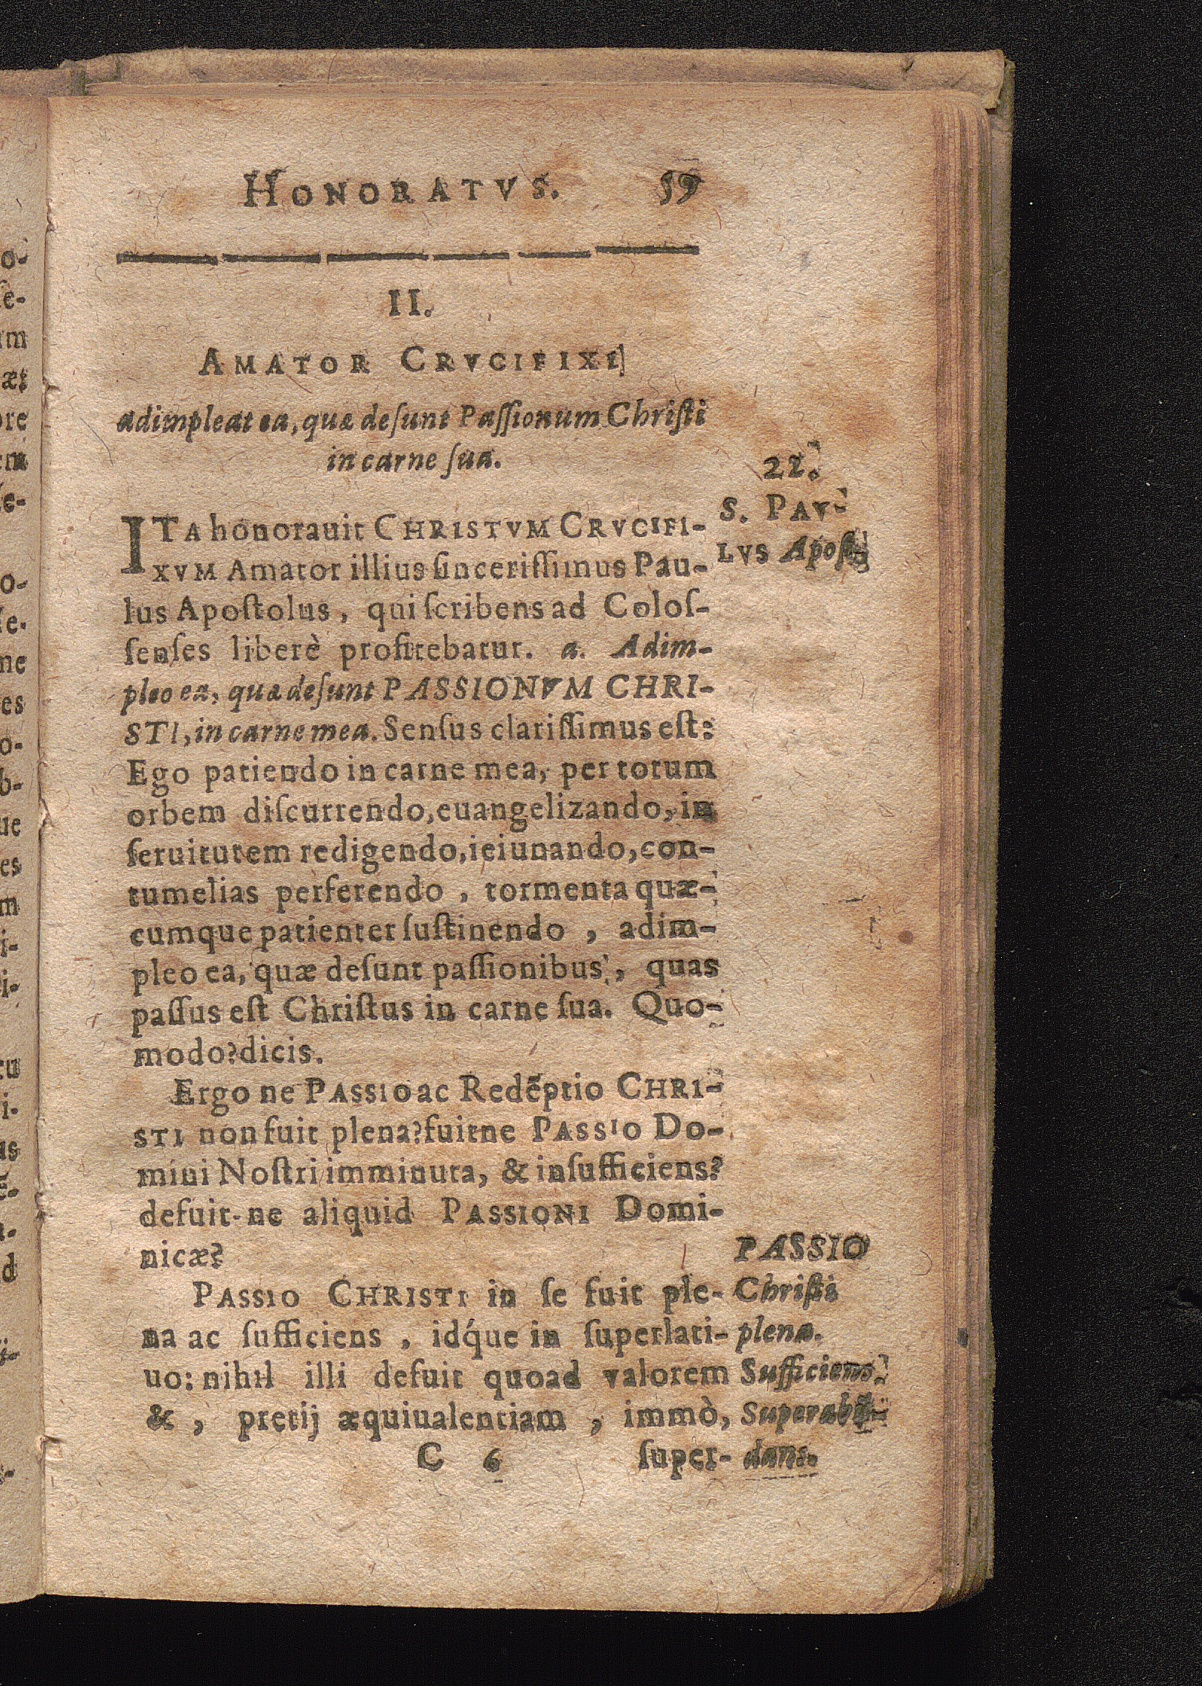 HONORATVS. 59
II.
AMATOR CRVCIFIXI
adimpleat ea, quæ deſunt Paſſionum Chriſti
in carne ſua.
22.
S. PAV-
LVS Apoſt.
ITA honorauit CHRISTVM CRVCIFI-
XVM Amator illius ſinceriſſimus Pau-
lus Apoſtolus, qui ſcribens ad Coloſ-
ſenſes liberè profitebatur. a. Adim-
pleo ea, quæ deſunt PASSIONVM CHRI-
STI, in carne mea. Senſus clariſſimus eſt:
Ego patiendo in carne mea, per totum
orbem diſcurrendo, euangelizando, in
ſeruitutem redigendo, ieiunando, con-
tumelias perferendo, tormenta quæ-
cumque patienter ſuſtinendo, adim-
pleo ea, quæ deſunt paſſionibus, quas
paſſus eſt Chriſtus in carne ſua. Quo-
modo? dicis.
Ergo ne PASSIO ac Redẽptio CHRI-
STI non fuit plena? fuitne PASSIO Do-
mini Noſtri imminuta, & inſufficiens?
defuit-ne aliquid PASSIONI Domi-
nicæ?
PASSIO CHRISTI in ſe fuit ple-
na ac ſufficiens, idq́ue in ſuperlati-
uo: nihil illi defuit quoad valorem
&, pretij æquiualentiam, immò,
PASSIO
Chriſti
plena.
Sufficiens.
Superabũ-
dans.
C 6 ſuper-